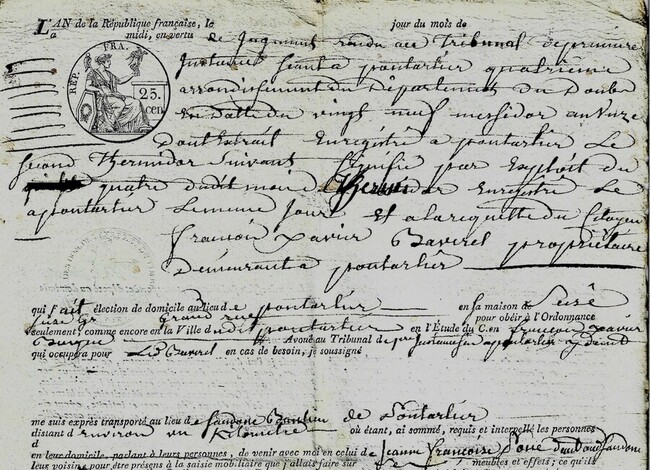 L'AN de la République française, le jour du mois de
à midi, en vertu de Jugement rendu au Tribunal de premiere
Instance seant a pontarlier quatrieme
arrondissement du Departement du Doubs
en datte du vingt neuf messidor an
REP. FRA.
25.
cen.
Dont Extrait Enregistré a pontarlier le
second Thermidor suivant Signifié par Exploit du
quatre dudit mois Thermidor Enregistré le
a pontarlier le meme jour Et a la requette du Citoyen
François Xavier Baverel propriétaire
Demeurant a pontarlier
qui fait élection de domicile au lieu de pontarlier en sa maison de
Grand rue pour obéir à l'Ordonnance
seulement, comme encore en la Ville dudit pontarlier en l'Étude du C.en françois Xavier
Avoué au Tribunal de pre Instance a pontarlier y demt
qui occupera pour Led Baverel en cas de besoin, je soussigné
me suis exprès transporté au lieu de de Pontarlier
distant d'environ un Kilometre où étant, ai sommé, requis et interpellé les personnes
d de Jeanne Françoise
en leur domicile, parlant à leurs personnes, de venir avec moi en celui de
leur voisine pour être présens à la saisie mobiliaire que j'allais faire sur meubles et effets; ce qu'ils